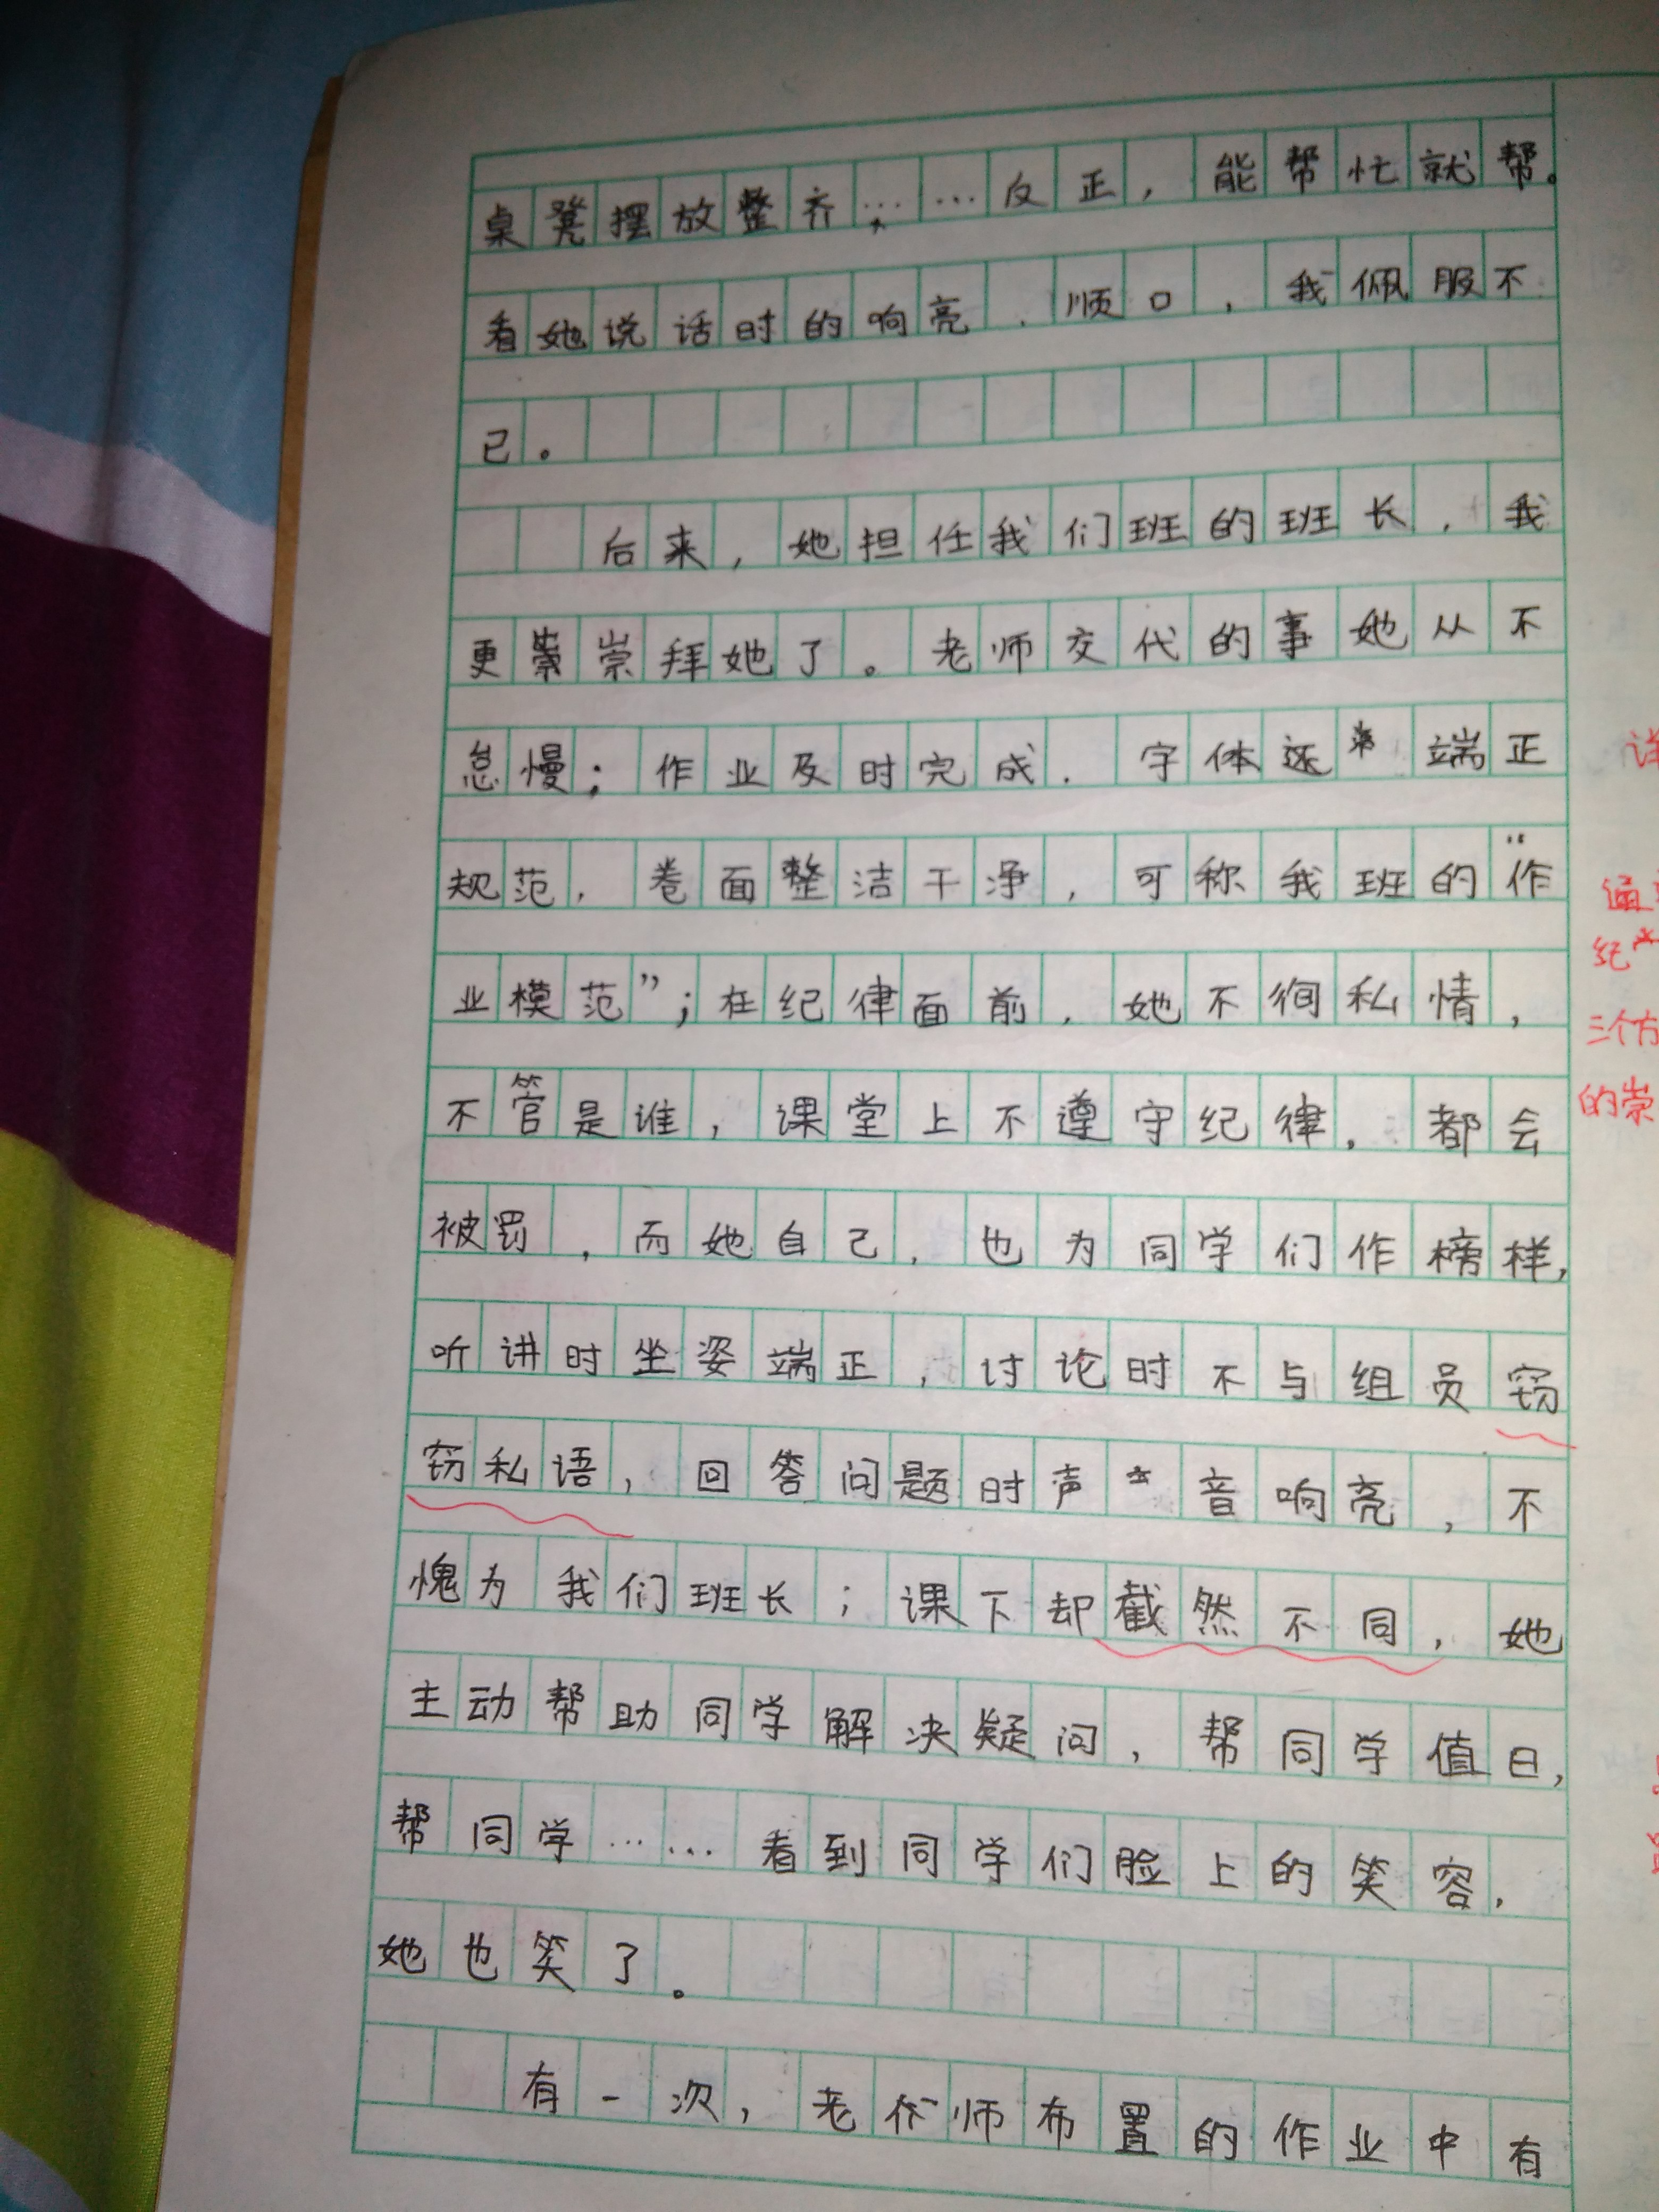 桌凳摆放整齐……反正，能帮忙就帮。
看她说话时的响亮、顺口，我佩服不
已。
后来，她担任我们班的班长，我
更崇拜她了。老师交代的事她从不
怠慢；作业及时完成．字体端正
规范，卷面整洁干净，可称我班的“作
业模范”；在纪律面前，她不徇私情，
不管是谁，课堂上不遵守纪律，都会
被罚，而她自己，也为同学们作榜样，
听讲时坐姿端正，讨论时不与组员窃
窃私语，回答问题时声音响亮，不
愧为我们班长；课下却截然不同，她
主动帮助同学解决疑问，帮同学值日，
帮同学……看到同学们脸上的笑容，
她也笑了。
有一次，老师布置的作业中有
通
纪
三个方
的崇